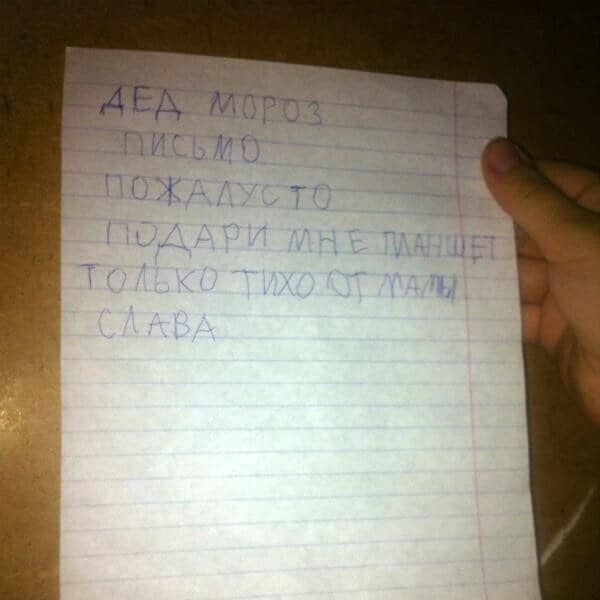 ДЕД МОРОЗ
ПИСЬМО
ПОЖАЛУСТО
ПОДАРИ МНЕ ПЛАНШЕТ
ТОЛЬКО ТИХО ОТ МАМЫ
СЛАВА